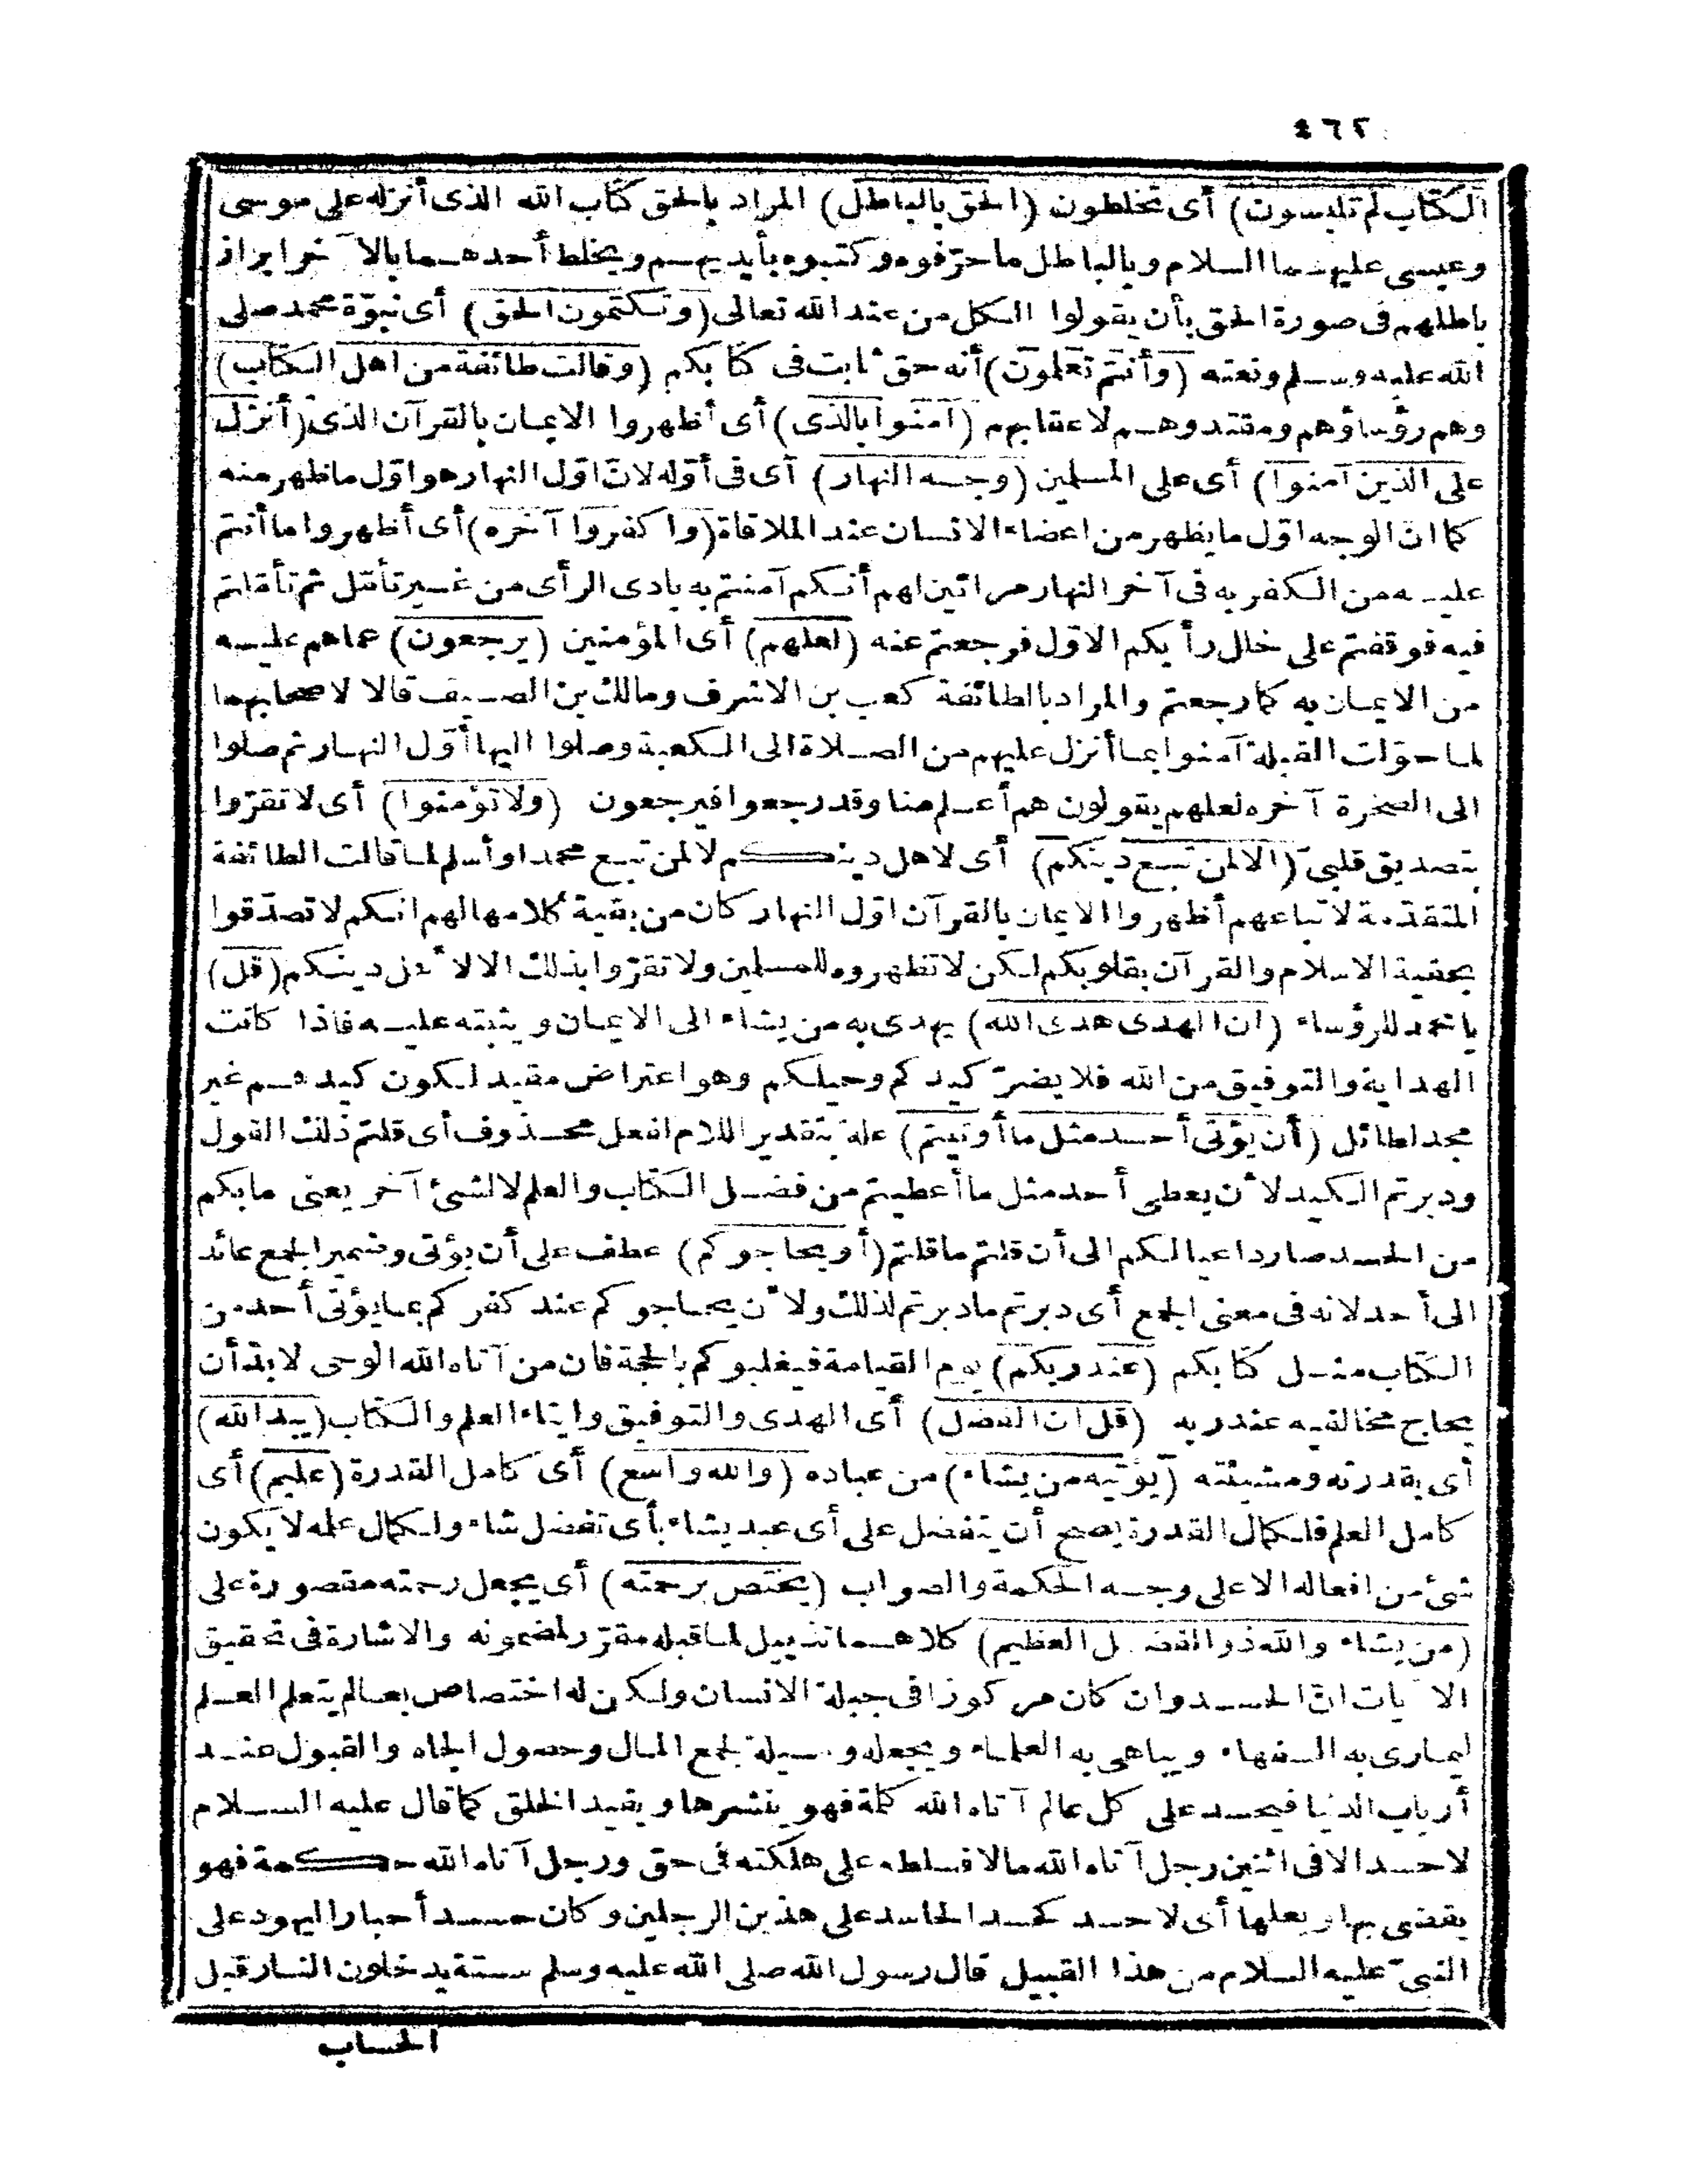 ٤٦٢
الكتاب لم تلبسون) أى تخلطون (الحق بالباطل) المراد بالحق كتاب الله الذى أنزله على موسى
وعيسى عليهما السلام وبالباطل ما حرّفوه وكتبوه بأيديهم ويخلط أحدهما بالآخر ابراز
باطلهم فى صورة الحق بأن يقولوا الكل من عند الله تعالى (وتكتمون الحق) أى نبوّة محمد صلى
الله عليه وسلم ونعته (وأنتم تعلمون) أنه حق ثابت فى كتابكم (وقالت طائفة من اهل الكتاب)
وهم رؤساؤهم ومقتدوهم لاعقابهم (آمنوا بالذى) أى أظهروا الايمان بالقرآن الذى (أنزل
على الذين آمنوا) أى على المسلمين (وجه النهار) أى فى أوّله لانّ اوّل النهار هو اوّل ما ظهر منه
كما انّ الوجه اوّل ما يظهر من اعضاء الانسان عند الملاقاة (واكفروا آخره) أى أظهروا ما أنتم
عليه من الكفر به فى آخر النهار مرائين لهم أنكم آمنتم به بادى الرأى من غير تأمّل ثم تأمّلتم
فيه فوقفتم على خلل رأيكم الاوّل فرجعتم عنه (لعلهم) أى المؤمنين (يرجعون) عما هم عليه
من الايمان به كما رجعتم والمراد بالطائفة كعب بن الاشرف ومالك بن الصيف قالا لاصحابهما
لما حوّلت القبلة آمنوا بما أنزل عليهم من الصلاة الى الكعبة وصلوا اليها أوّل النهار ثم صلوا
الى الصخرة آخره لعلهم يقولون هم أعلم منا وقد رجعوا فيرجعون (ولا تؤمنوا) أى لا تقرّوا
بتصديق قلبىّ (الا لمن تبع دينكم) أى لاهل دينكم لا لمن تبع محمدا وأسلم لما قالت الطائفة
المتقدّمة لاتباعهم أظهروا الايمان بالقرآن اوّل النهار كان من بقية كلامها لهم انكم لا تصدّقوا
بحقية الاسلام والقرآن بقلوبكم لكن لا تظهروه للمسلمين ولا تقرّوا بذلك الا لأهل دينكم (قل)
يا محمد للرؤساء (ان الهدى هدى الله) يهدى به من يشاء الى الايمان ويثبته عليه فاذا كانت
الهداية والتوفيق من الله فلا يضرّ كيدكم وحيلكم وهو اعتراض مقيد لكون كيدهم غير
مجد لطائل (أن يؤتى أحد مثل ما أوتيتم) علة بتقدير اللام لفعل محذوف أى قلتم ذلك القول
ودبرتم الكيد لأن يعطى أحد مثل ما أعطيتم من فضل الكتاب والعلم لا لشئ آخر يعنى ما بكم
من الحسد صار داعيا لكم الى أن قلتم ما قلتم (أو يحاجوكم) عطف على أن يؤتى وضمير الجمع عائد
الى أحد لانه فى معنى الجمع أى دبرتم ما دبرتم لذلك ولأن يحاجوكم عند كفركم بما يؤتى أحد من
الكتاب مثل كتابكم (عند ربكم) يوم القيامة فيغلبوكم بالحجة فان من آتاه الله الوحى لا بدّ أن
يحاج مخالفيه عند ربه (قل ان الفضل) أى الهدى والتوفيق وايتاء العلم والكتاب (بيد الله)
أى بقدرته ومشيئته (يؤتيه من يشاء) من عباده (والله واسع) أى كامل القدرة (عليم) أى
كامل العلم فلكمال القدرة يصح أن يتفضل على أى عبد يشاء بأى تفضل شاء ولكمال علمه لا يكون
شئ من افعاله الا على وجه الحكمة والصواب (يختص برحمته) أى يجعل رحمته مقصورة على
(من يشاء والله ذو الفضل العظيم) كلاهما تذييل لما قبله مقرّر لمضمونه والاشارة فى تحقيق
الآيات انّ الحسد وان كان مركوزا فى جبلة الانسان ولكن له اختصاص بعالم يتعلم العلم
ليمارى به السفهاء ويباهى به العلماء ويجعله وسيلة لجمع المال وحصول الجاه والقبول عند
أرباب الدنيا فيحسد على كل عالم آتاه الله كلمة فهو ينشرها ويفيد الخلق كما قال عليه السلام
لا حسد الا فى اثنين رجل آتاه الله مالا فسلطه على هلكته فى حق ورجل آتاه الله حكمة فهو
يقضى بها ويعلمها أى لا حسد كحسد الحاسد على هذين الرجلين وكان حسد أحبار اليهود على
النبىّ عليه السلام من هذا القبيل قال رسول الله صلى الله عليه وسلم ستة يدخلون النار قبل
الحساب